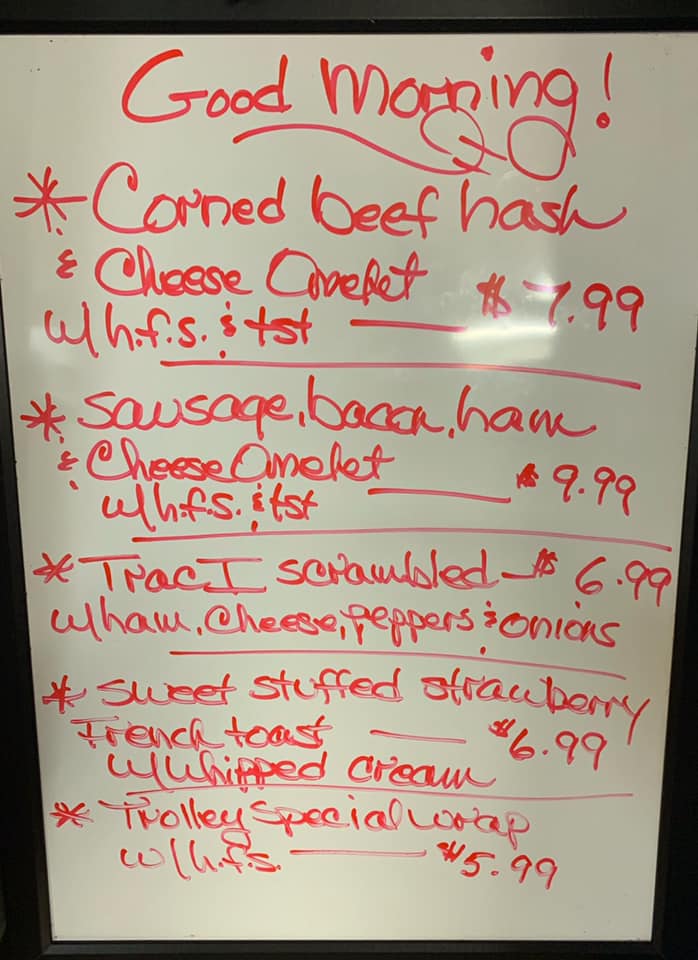 Good Morning!
* Corned beef hash
& Cheese Omelet $7.99
w/h.f.s. & tst
* Sausage, bacon, ham
& Cheese Omelet $9.99
w/h.f.s. & tst
* TracI scrambled - $6.99
w/ham, cheese, peppers & onions
* Sweet stuffed strawberry
French toast $6.99
w/whipped cream
* Trolley Special wrap
w/h.f.s. $5.99